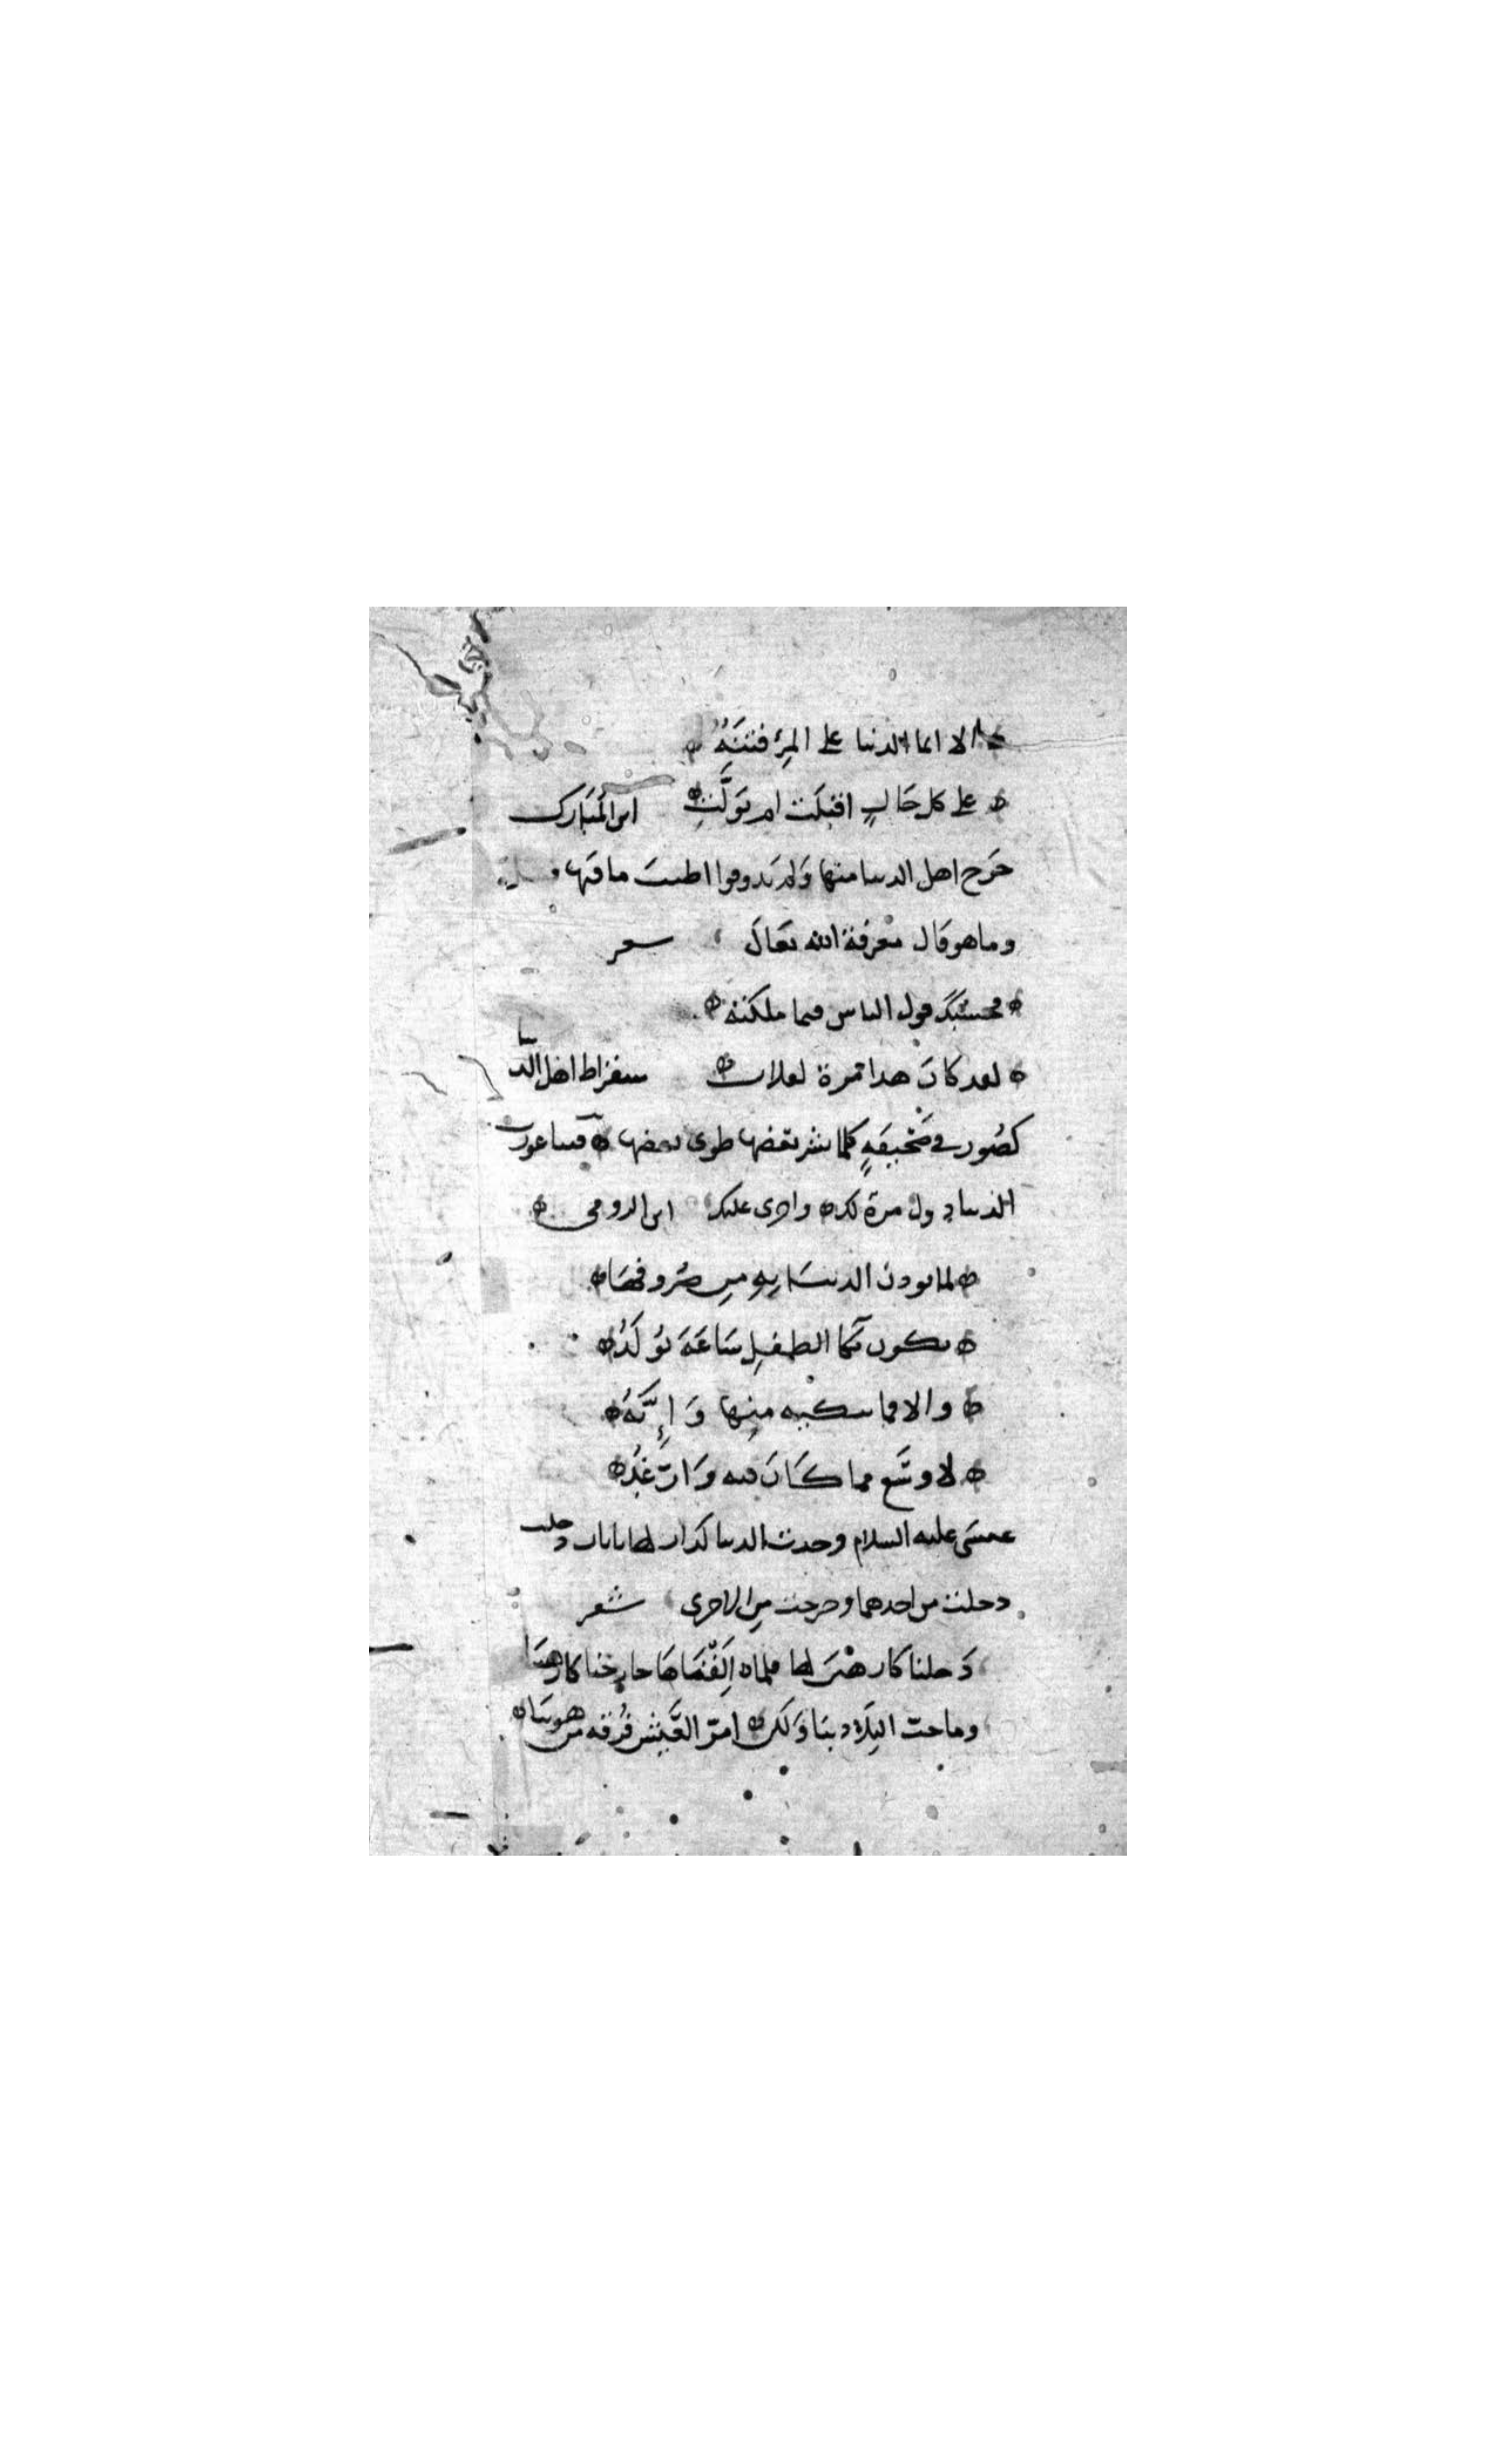 الا انما الدنيا على المرء فتنة
على كل حال اقبلت ام تولت ابن المبارك
خرج اهل الدنيا منها ولم يذوقوا اطيب ما فيها
وما هو قال معرفة الله تعالى شعر
فحسبك قول الناس فيما ملكته
لقد كان هذا مرة لفلان سقراط اهل الدنيا
كصور في صحيفة كلما نشر بعضها طوى بعضها فيثاغورس
الدنيا دول مرة لك واخرى عليك ابن الرومي
لما تؤذن الدنيا به من صروفها
يكون بكا الطفل ساعة يولد
والا فما يبكيه منها وانه
لاوسع مما كان فيه وارغد
عيسى عليه السلام وجدت الدنيا كدار لها بابان دخلت
دخلت من احدهما وخرجت من الاخرى شعر
دخلنا كارهين لها فلما الفناها خارجنا كارهينا
وما حب البلاد بنا ولكن امر العيش فرقة من هوينا